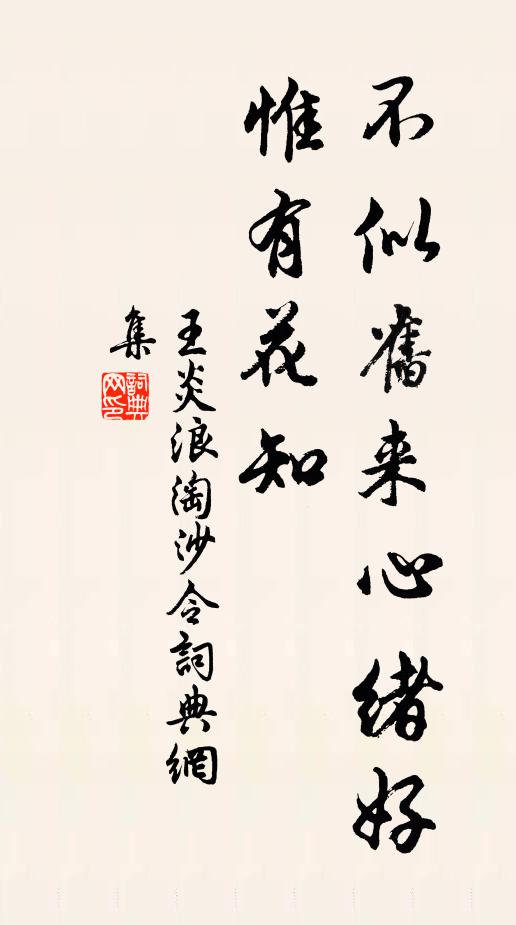 不似舊来心緒好
惟有花知
王炎浪淘沙令詞典網
集
詞典
网印